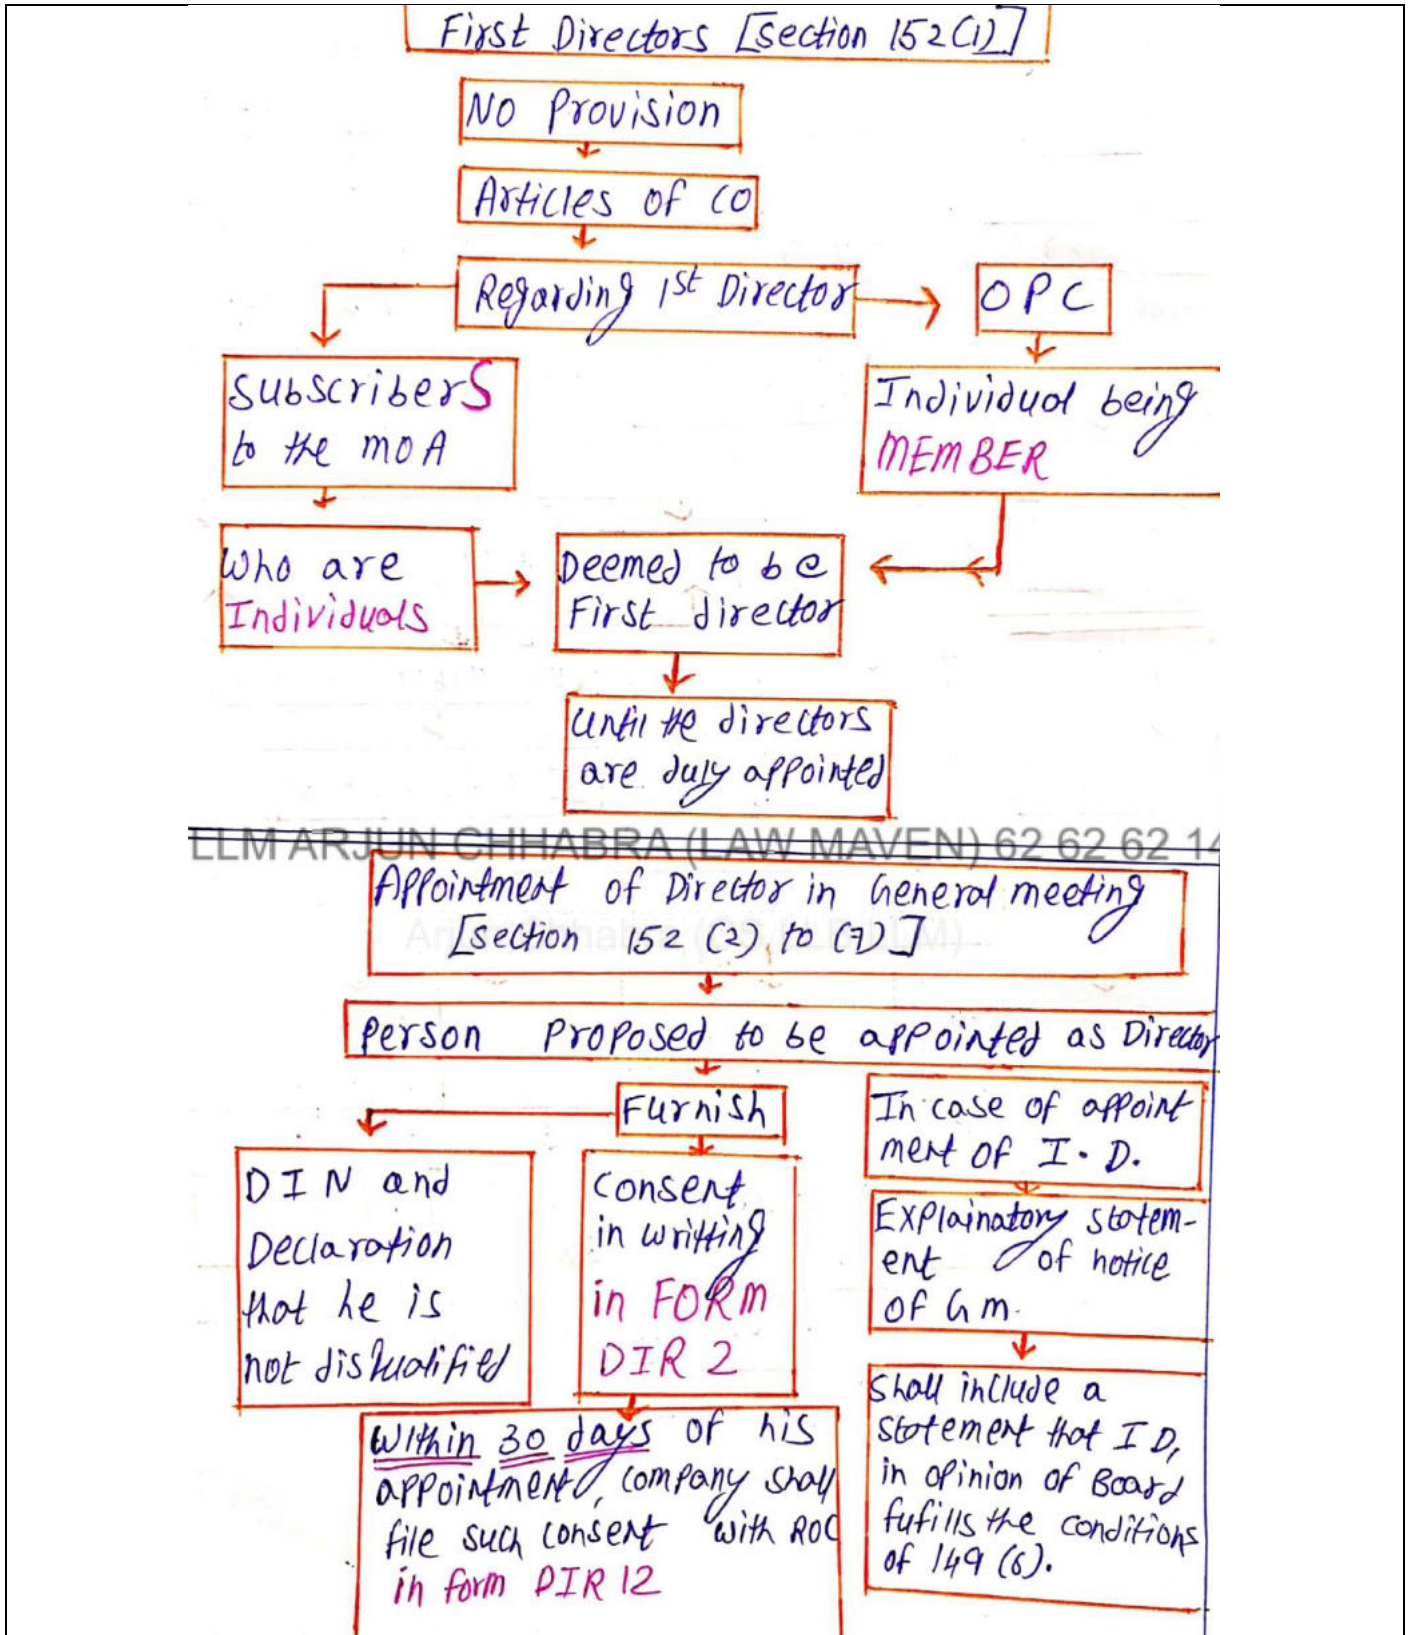 First Directors [section 152(1)]
NO Provision
Articles of CO
Regarding 1st Director
OPC
Subscribers
to the MOA
Individual being
MEMBER
Who are
Individuals
Deemed to be
First director
Until the directors
are duly appointed
LLM ARJUN CHHABRA (LAW MAVEN) 62 62 62 14
Appointment of Director in General meeting
[section 152 (2) to (7)]
Person Proposed to be appointed as Director
Furnish
DIN and
Declaration
that he is
not disqualified
Consent
in writting
in FORM
DIR 2
Within 30 days of his
appointment, company shall
file such consent with ROC
in form DIR 12
In case of appoint
ment of I.D.
Explainatory statem-
ent of notice
of G m.
Shall include a
statement that ID,
in opinion of Board
fufills the conditions
of 149 (6).